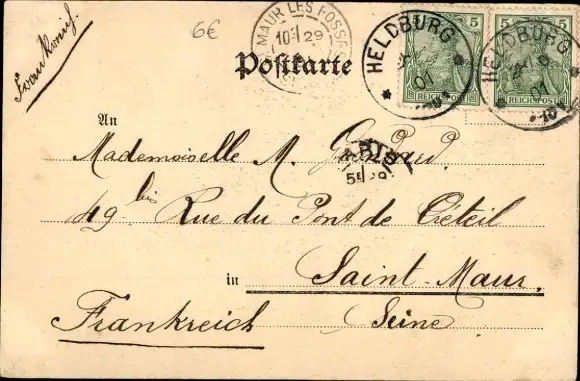 6€
MAUR LES FOSSÉS
10 29
Postkarte
HELDBURG
01
5 5
REICHSPOST
HELDBURG
01
5 5
REICHSPOST
An
Mademoiselle M.
PARIS
49 bis Rue du Pont de Créteil
in Saint-Maur.
Frankreich Seine